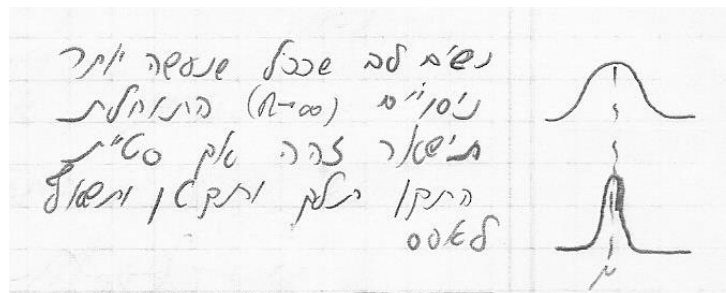 נשים לב שככל שנעשה יותר
ניסויים (n→∞) התוחלת
תישאר זהה אך סטיית
התקן תלך ותקטן ותשאף
לאפס
μ